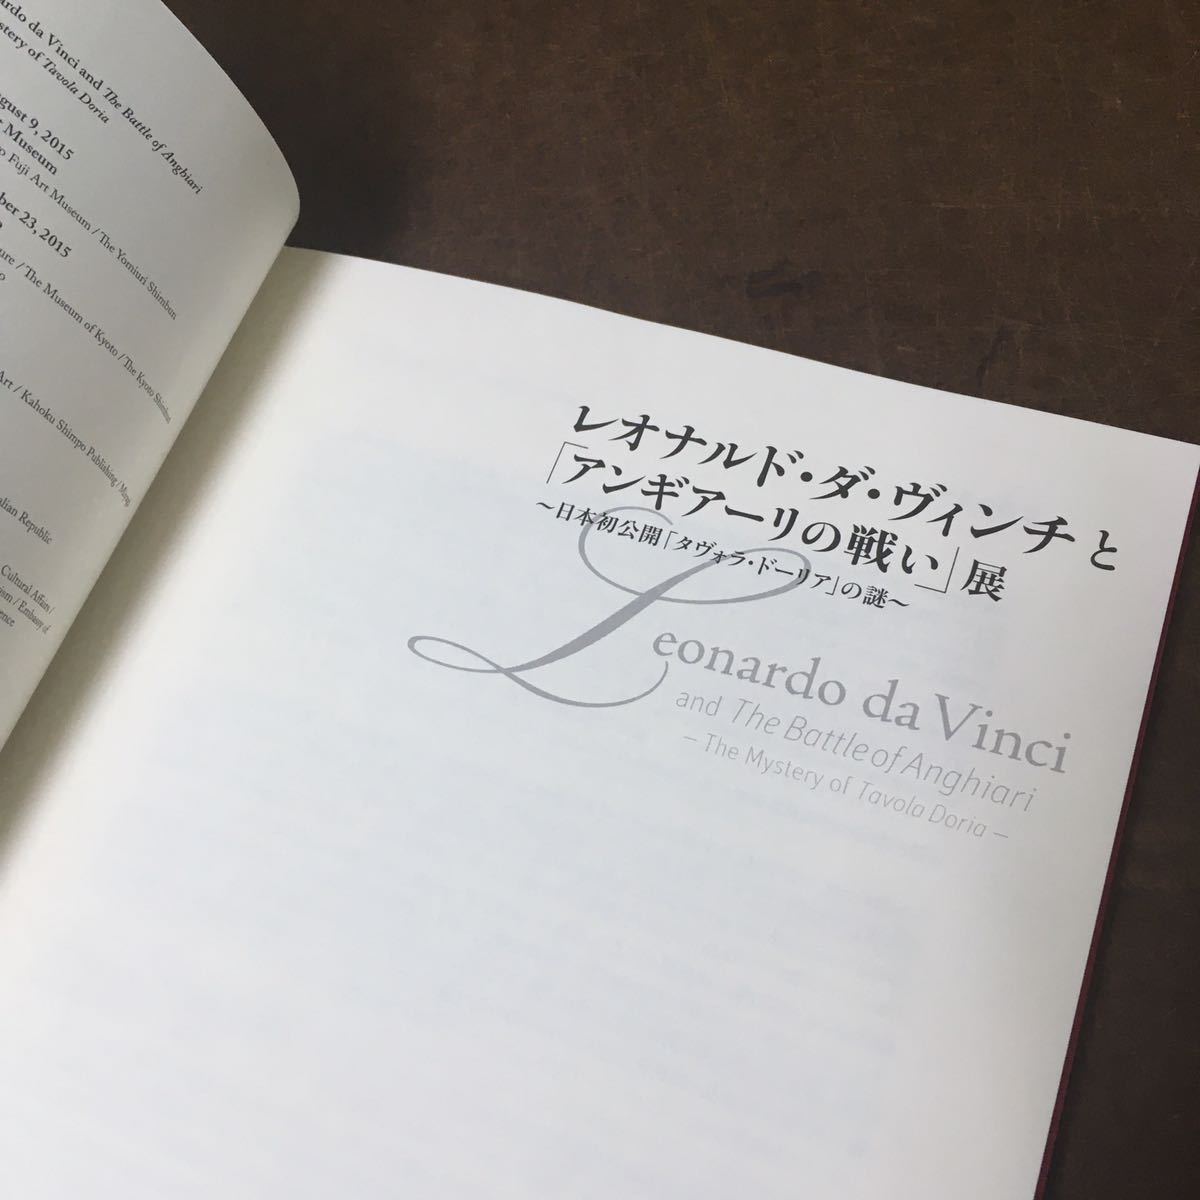 da Vinci and The Battle of Anghiari
of Tavola Doria
9, 2015
Museum
Fuji Art Museum / The Yomiuri Shimbun
23, 2015
/ The Museum of Kyoto / The Kyoto Shimbun
/ Kahoku Shimpo Publishing /
Republic
Cultural Affairs /
/ Embassy of
レオナルド・ダ・ヴィンチと
「アンギアーリの戦い」展
～日本初公開「タヴォラ・ドーリア」の謎～
Leonardo da Vinci
and The Battle of Anghiari
– The Mystery of Tavola Doria –